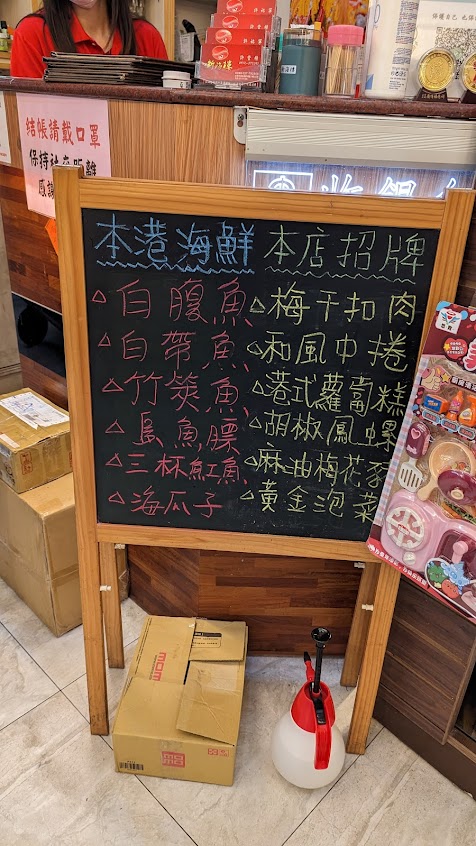 結帳請戴口罩
保持社交距離
本港海鮮
△白腹魚
△白帶魚
△竹筴魚
△島魚膘
△三杯魟魚
△海瓜子
本店招牌
△梅干扣肉
△和風中捲
△港式蘿蔔糕
△胡椒鳳螺
△麻油梅花豬
△黃金泡菜
momo